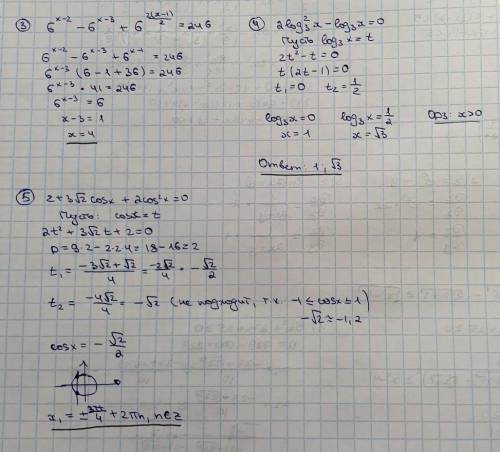 ③ 6^(x-2) - 6^(x-3) + 6^(2(x-1)/2) = 246
6^(x-2) - 6^(x-3) + 6^(x-1) = 246
6^(x-3) (6 - 1 + 36) = 246
6^(x-3) · 41 = 246
6^(x-3) = 6
x - 3 = 1
x = 4
④ 2log₃²x - log₃x = 0
Пусть log₃x = t
2t² - t = 0
t(2t - 1) = 0
t₁ = 0 t₂ = 1/2
log₃x = 0 log₃x = 1/2 ОДЗ: x>0
x = 1 x = √3
Ответ: 1, √3
⑤ 2 + 3√2 cosx + 2cos²x = 0
Пусть: cosx = t
2t² + 3√2 t + 2 = 0
D = 9·2 - 2·2·4 = 18 - 16 = 2
t₁ = (-3√2 + √2)/4 = -2√2/4 = -√2/2
t₂ = -4√2/4 = -√2 (не подходит, т.к. -1 ≤ cosx ≤ 1)
-√2 ≈ -1,2
cosx = -√2/2
x₁ = ±3π/4 + 2πn, n∈z